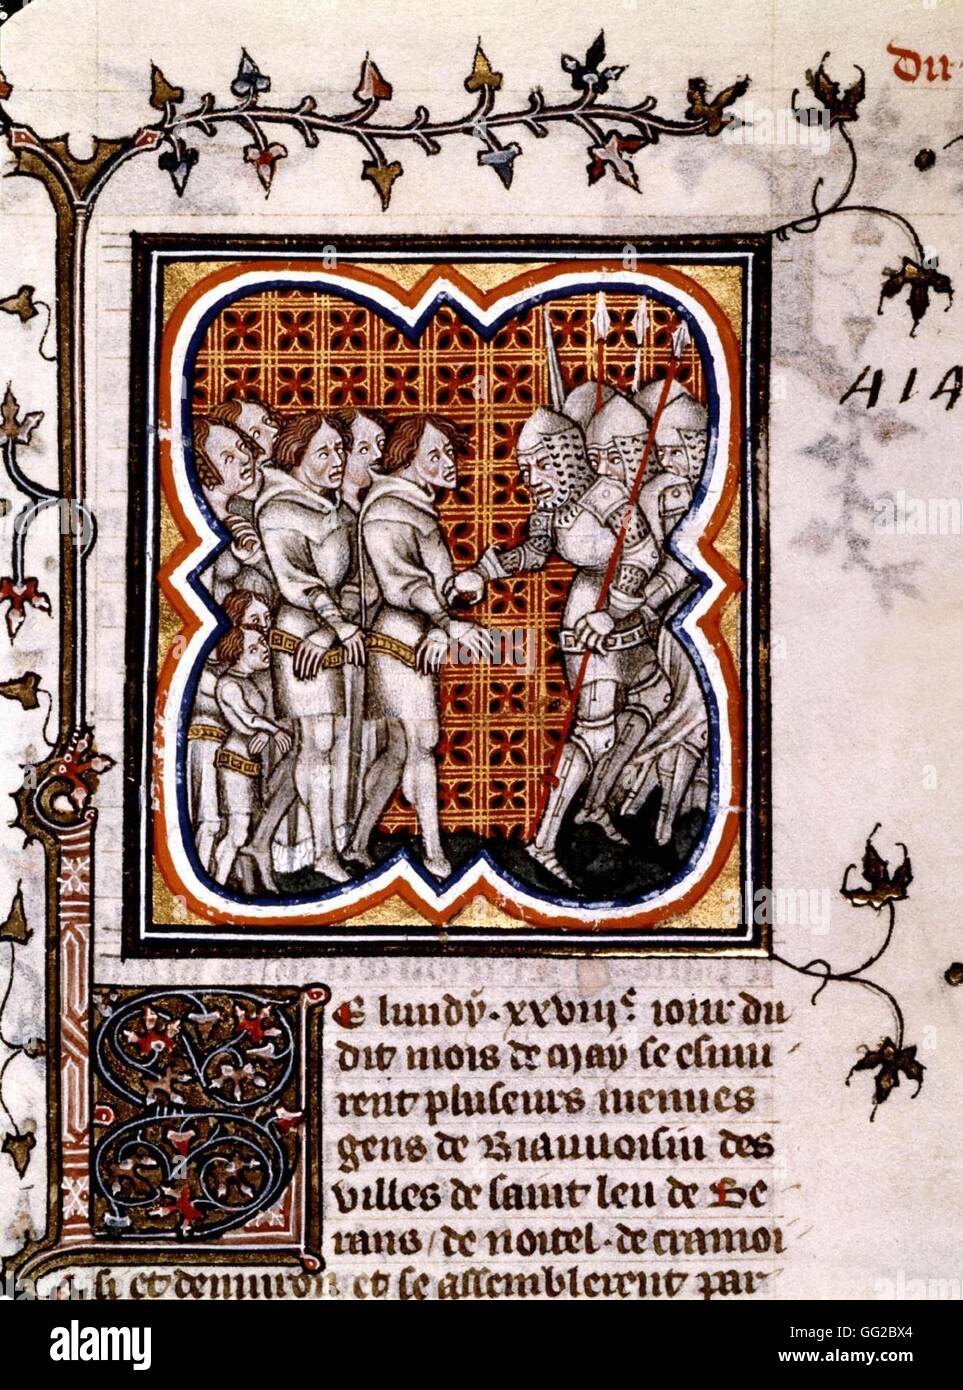 Du
414
Le lundy · xxviiiᵉ iour du
dit mois de may se esmu
rent pluseurs menues
gens de Biauvoisin des
villes de saint leu de Se
rans / de noitel · de cramoi
si et denuiron et se assemblerent par
alamy
Image ID: GG2BX4
www.alamy.com